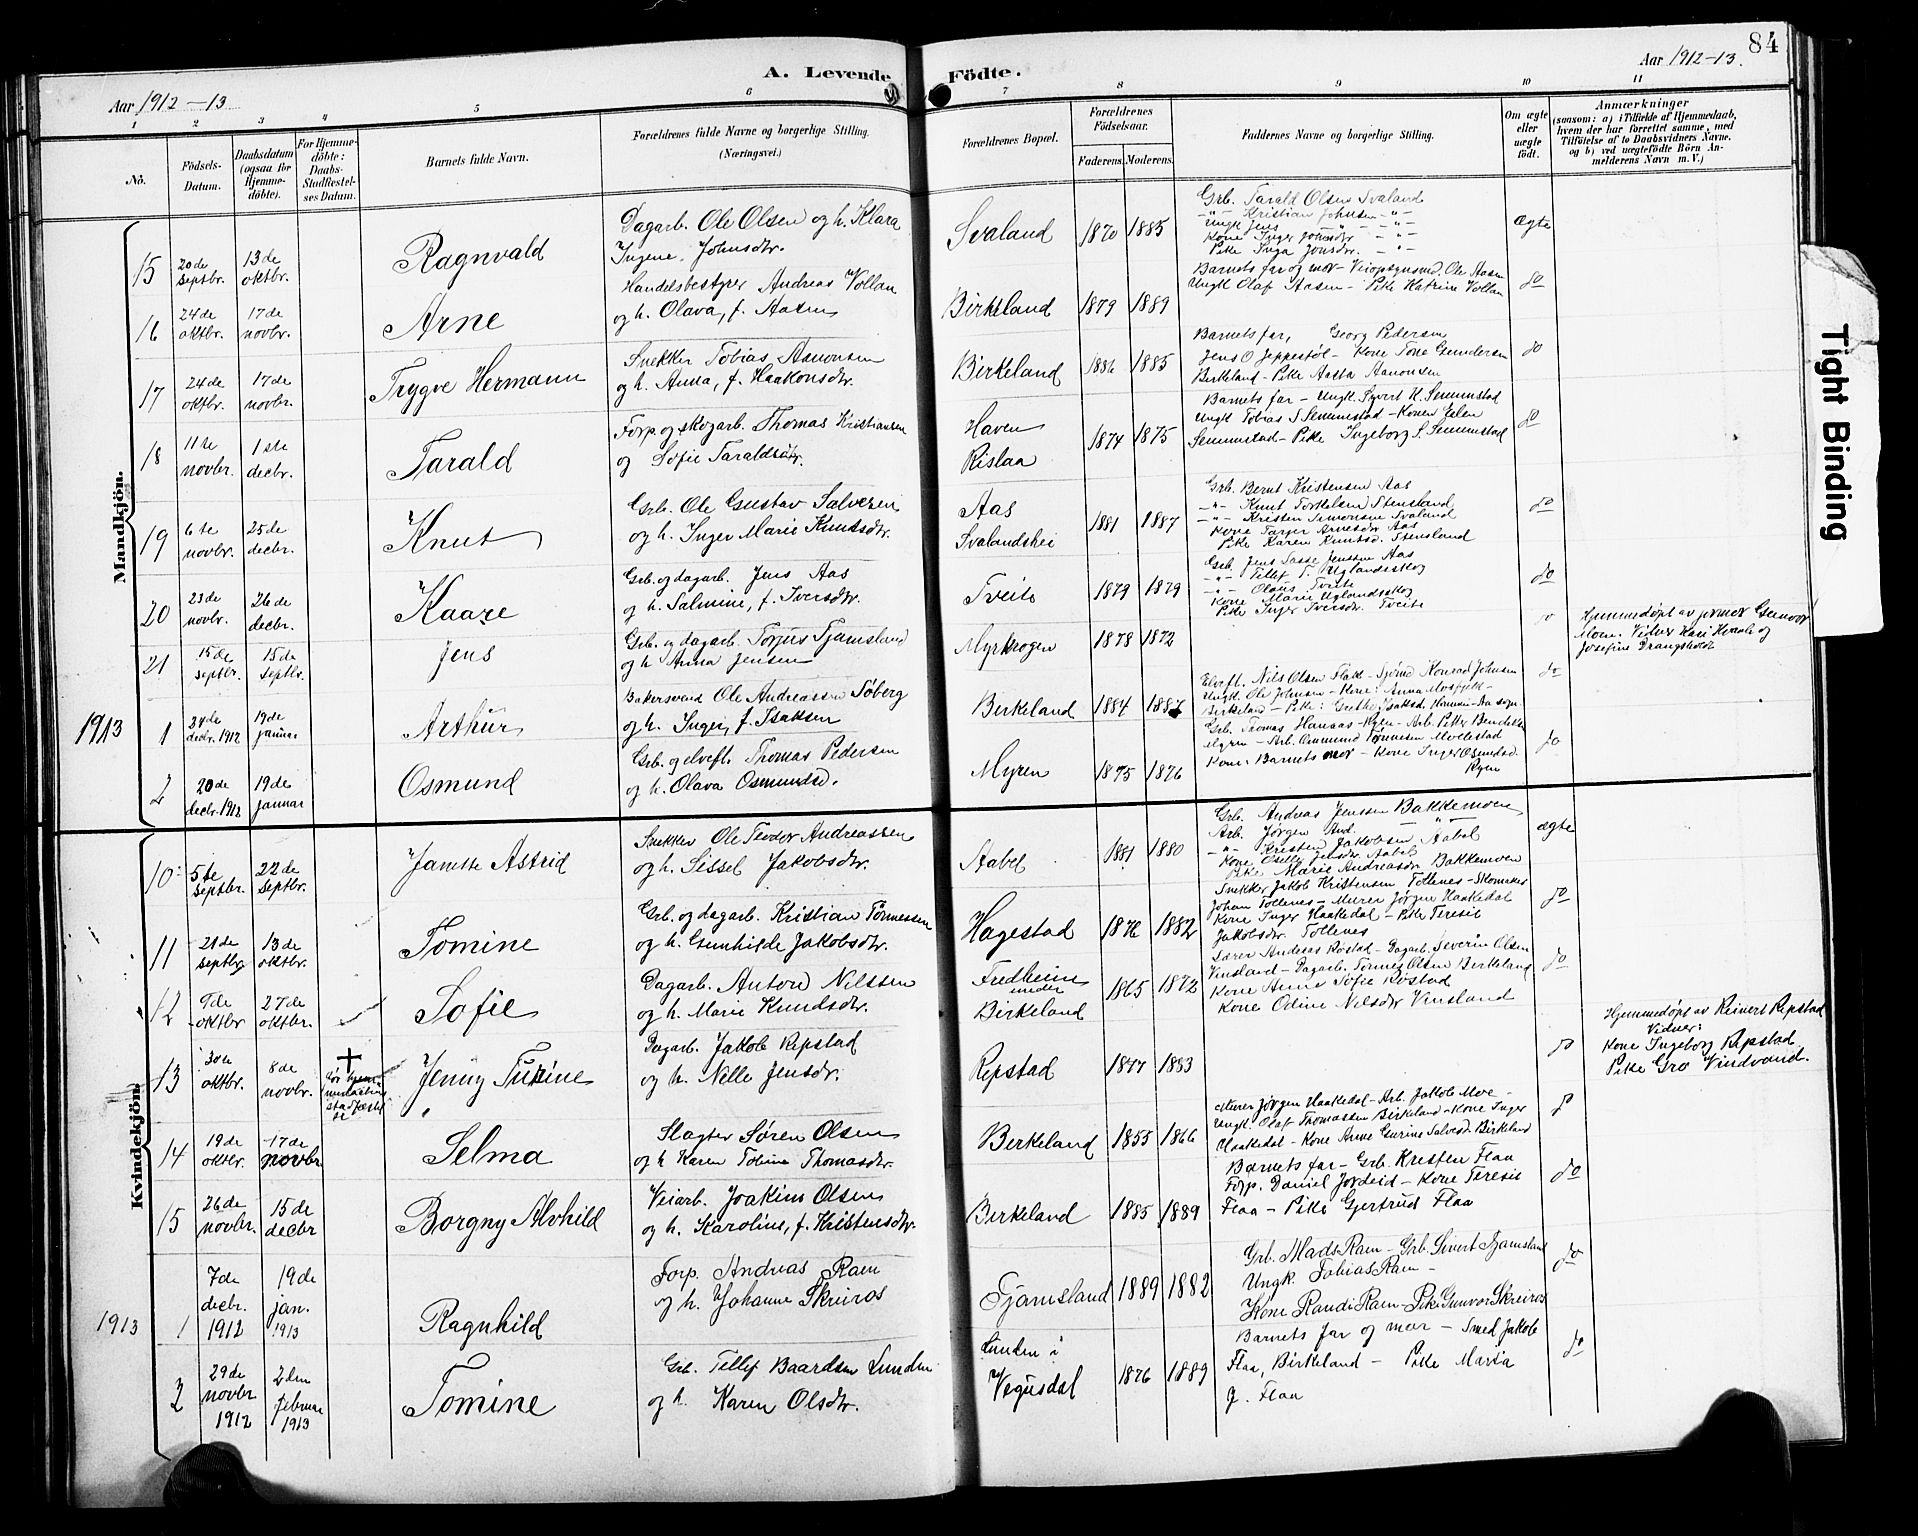 84
A. Levende Födte.
Aar 1912-13
Aar 1912-13.
1 2 3 4 5 6 7 8 9 10 11
No.
Födsels-Datum.
Daabsdatum (ogsaa for Hjemme-döbte).
For Hjemme-döbte: Daabs-Stadfestel-ses Datum.
Barnets fulde Navn.
Forældrenes fulde Navne og borgerlige Stilling.
(Næringsvei.)
Forældrenes Bopæl.
Forældrenes Födselsaar.
Faderens. Moderens.
Faddernes Navne og borgerlige Stilling.
Om ægte eller uægte födt.
Anmærkninger
(saasom: a) i Tilfælde af Hjemmedaab, hvem der har forrettet samme, med Tilföielse af to Daabsvidners Navne. og b) ved uægtefödte Börn An-melderens Navn m. V.)
Tight Binding
Mandkjön.
15 20de septbr. 13de oktbr. Ragnvald
Dagarb. Ole Olsen og h. Klara
Ingene, Johnsdtr.
Svaland 1870 1885
Grb. Tarald Olsen Svaland
-"- Kristian Johnsen -"-
Ungk. Jens -"- -"-
Kone Inger Johnsdtr -"-
Pike Inga Jonsdtr. -"-
Ægte
16 24de oktbr. 17de novbr. Arne
Handelsbestyrer Andreas Vollan
og h. Olava, f. Aasen
Birkeland 1879 1889
Barnets far og mor - Veiopsynsmd. Ole Aasen
Ungk Olaf Aasen - Pike Katrine Vollan
do
17 24de oktbr. 17de novbr. Trygve Hermann
Snekker Tobias Aanonsen
og h. Anna, f. Haakonsdtr.
Birkeland 1886 1885
Barnets far, Georg Pedersen
Jens O Jeppestøl - Kone Tone Gundersen
Birkeland - Pike Aasta Aanonsen
do
18 11te novbr. 1ste decbr. Tarald
Forp. og skogarb. Thomas Kristiansen
og Sofie Taraldsdtr.
Haven
Rislaa 1874 1875
Barnets far - Ungk. Syvert H. Senumstad
Ungk Tobias S Senumstad - Kone Elen
Senumstad - Pike Ingeborg S. Senumstad
do
19 6te novbr. 25de decbr. Knut
Grb. Ole Gustav Salvesen
og h. Inger Marie Knutsdtr.
Aas
Svalandshei 1881 1887
Grb. Bernt Kristensen Aas
-"- Knut Torkelsen Stensland
-"- Kristen Simonsen Svaland
Kone Targer Arnesdtr Aas
Pike Karen Knutsd. Stensland
do
20 23de novbr. 26de decbr. Kaare
Grb. og dagarb. Jens Aas
og h. Salmine, f. Iversdtr.
Tveite 1879 1879
Grb Jens Sasse Jenssen Aas
-"- Tellef T. Uglandsskog
-"- Olaus Tveite
Kone Marie Uglandsskog
Pike Inger Iversdtr. Tveite
do
21 15de septbr. 15de septbr. Jens
Grb. og dagarb. Torjus Tjamsland
og h. Anna Jensen
Myrkrogen 1878 1872
do
Hjemmedøpt av jormor Gunvor
Moen. Vidner Kari Hvaale og
Josefine Drangsholt
1913
1 24de decbr. 1912 19de januar Arthur
Bakersvend Ole Andreassen Søberg
og h. Inger, f. Isaksen
Birkeland 1884 1887
Elveft. Nils Olsen Flaa - Sjømd Konrad Johnsen
Ungk. Ole Johnsen - Kone: Anna Mosfjeld -
Birkeland - Pike: Grethe Isaksd.
do
2 20de decbr. 1912 19de januar Osmund
Grb. og elveft. Thomas Pedersen
og h. Olava Osmundsd.
Myren 1875 1876
Grb. Thomas Hansen Ryen - Arb. Peder Bendiksen
Myren - Arb. Ommund Tønnesen Mollestad
Kone: Barnets mor - Kone Inger Osmundsd.
Ryen
do
Kvindekjön.
10 5te septbr. 22de septbr. Janette Astrid
Snekker Ole Teodor Andreassen
og h. Sissel Jakobsdtr.
Aabel 1881 1880
Grb. Andreas Jenssen Bakkemoen
Arb. Jørgen And. -"-
-"- Kristen Jakobsen Aabel
Kone Oselle Jensdtr. Aabel
Pike Marie Andreasdtr Bakkemoen
ægte
11 21de septbr. 13de oktbr. Tomine
Grb. og dagarb. Kristian Tønnessen
og h. Gunhilde Jakobsdtr.
Hagestad 1876 1882
Snekker Jakob Kristensen Tollenes - Skomaker
Johan Tollenes - Murer Jørgen Haakedal
Kone Inger Haakedal - Pike Teresie
Jakobsdtr. Tollenes
do
12 9de oktbr 27de oktbr. Sofie
Dagarb. Anton Nilssen
og h. Marie Knudsdtr.
Fredheim
under
Birkeland 1865 1872
Lærer Andreas Røstad - Dagarb. Severin Olsen
Vinsland - Dagarb. Tønnes Olsen Birkeland
Kone Anne Sofie Røstad
Kone Odine Nilsdtr Vinsland
do
13 30te oktbr. 8de novbr. Jenny Turine
Dagarb. Jakob Repstad
og h. Nelle Jensdtr.
Repstad 1877 1883
do
Hjemmedøpt av Reinert Repstad
Vidner:
Kone Ingeborg Repstad
Pike Gro Vindvand.
14 19de oktbr. 17de novbr Selma
Slagter Søren Olsen
og h Karen Tobine Thomasdtr.
Birkeland 1855 1866
Murer Jørgen Haakedal - Arb. Jakob Moe -
Ungk. Olaf Thomassen Birkeland - Kone Inger
Haakedal - Kone Anne Gurine Salvesd. Birkeland
do
15 26de novbr. 15de decbr Borgny Alvhild
Veiarb. Joakim Olsen
og h. Karoline, f. Kristensdtr.
Birkeland 1885 1889
Barnets far - Grb. Kristen Flaa
Forp. Daniel Jordeid - Kone Teresie
Flaa - Pike Gjertrud Flaa
do
1913
1 7de decbr. 1912 19de jan. 1913 Ragnhild
Forp. Andreas Ram
og h. Johanne Skreiros
Tjamsland 1889 1882
Grb. Mads Ram - Grb. Sivert Tjamsland
Ungk. Tobias Ram -
Kone Randi Ram - Pike Gunvor Skreiros
do
2 29de novbr 1912 2den februar 1913 Tomine
Grb. Tellef Baardsen Lunden
og h. Karen Olsdtr.
Lunden i
Vegusdal 1876 1889
Barnets far og mor - Smed Jakob
Flaa, Birkeland - Pike Maria
J. Flaa
do